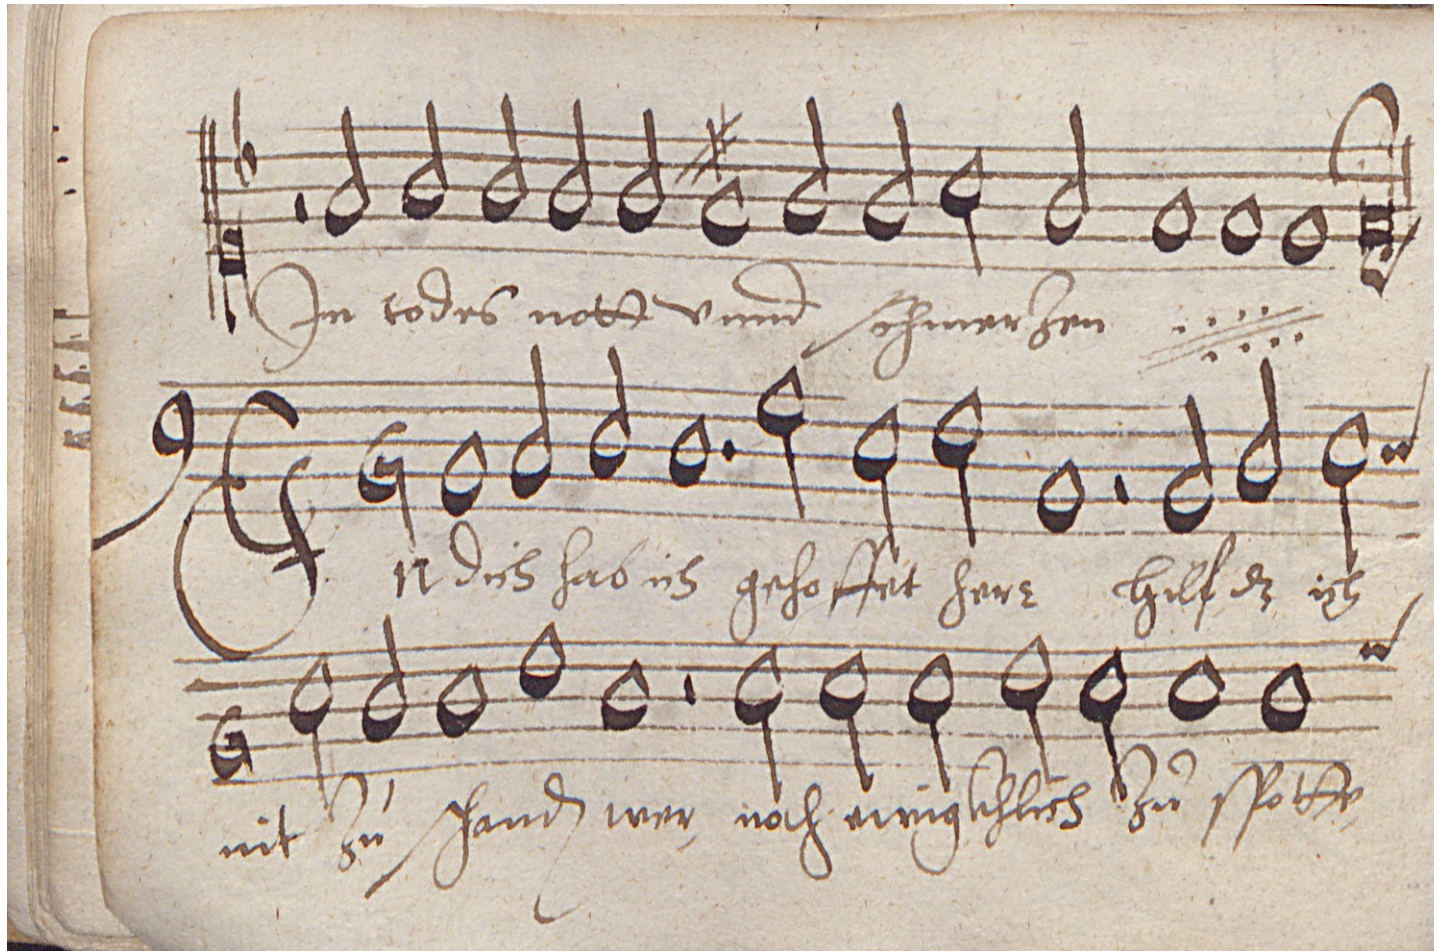 In todes nott vnnd schmerzen
In dich hab ich gehoffet herr hilf dz ich
nit zů schand wer noch ewigchlich zů spotte